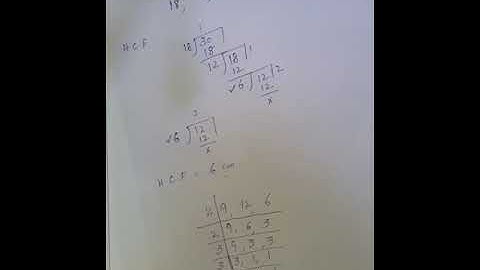 18,
1
H.C.F. 18 ) 30
18
12 ) 18 ( 1
12
✓6 ) 12 ( 2
12
x
2
✓6 ) 12
12
x
H.C.F = 6 cm
2 9, 12, 6
2 9, 6, 3
3 9, 3, 3
3 3, 1, 1